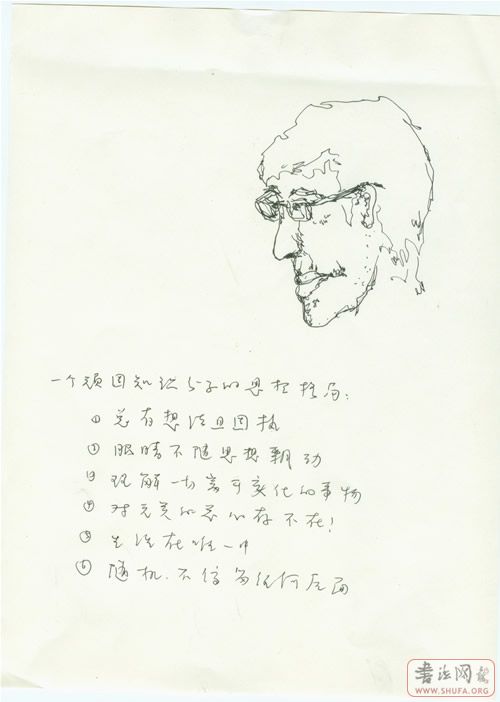 一个顽固知识分子的思想格局：
① 总有想法且固执
② 眼睛不随思想翻动
③ 理解一切富可变化的事物
④ 对完美的总心存不在！
⑤ 生活在唯一中
⑥ 随机.不信任何反面
书法网
WWW.SHUFA.ORG